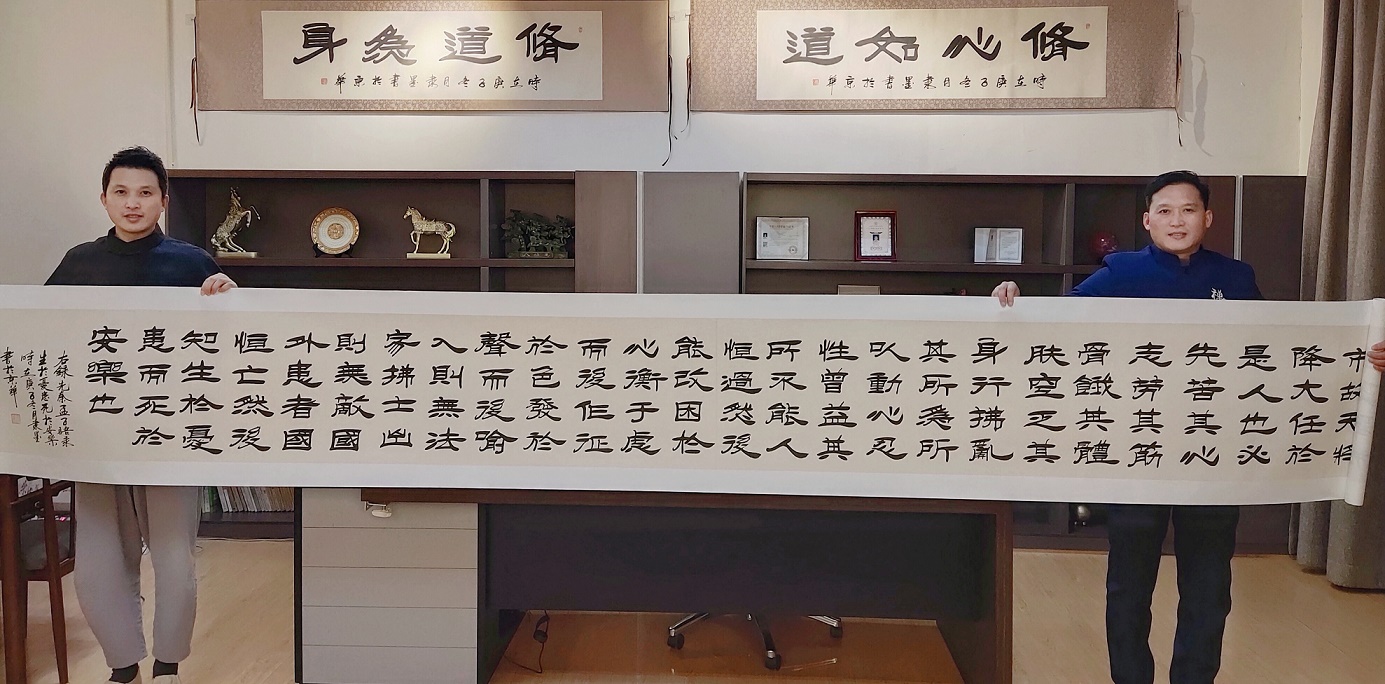 脩心如道
時在庚子冬月隶墨書於京華
脩道為身
時在庚子冬月隶墨書於京華
市故天将
降大任於
是人也必
先苦其心
志劳其筋
骨餓其體
肤空乏其
身行拂亂
其所為所
以動心忍
性曾益其
所不能人
恒過然後
能改困於
心衡于慮
而後作征
於色發於
聲而後喻
入則無法
家拂士出
則無敵國
外患者國
恒亡然後
知生於憂
患而死於
安樂也
右録先秦孟子語來
生於憂患死於安樂
時在庚子冬月隶墨
書於京華